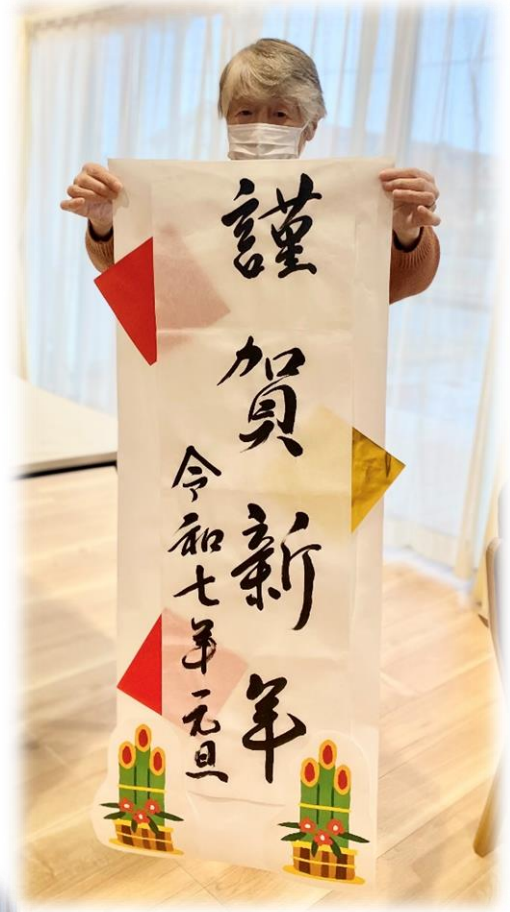 謹賀新年
令和七年元旦